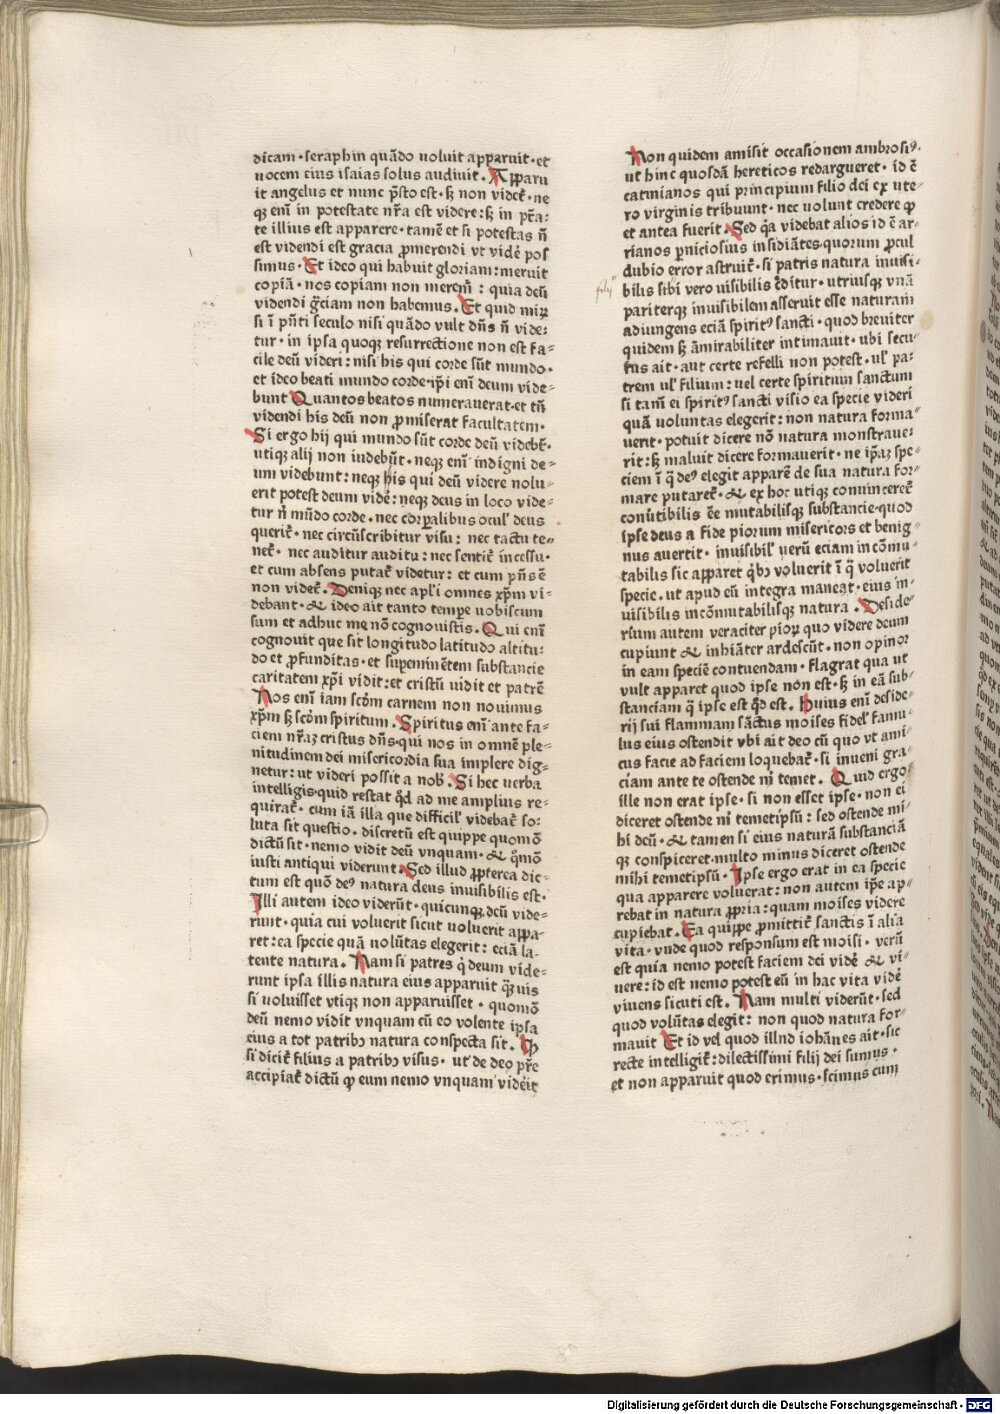 dicam·seraphin quãdo uoluit apparuit·et
uocem eius isaias solus audiuit. Apparu
it angelus et nunc p̃sto est·sꝫ non videt̃·ne
qꝫ eni̅ in potestate nr̃a est videre:sꝫ in pr̃a-
te illius est apparere·tamẽ et si potestas ñ
est videndi est gracia ꝓmerendi vt vidẽ pos
simus·Et ideo qui habuit gloriam:meruit
copiã·nos copiam non merem̃: quia deũ
videndi gr̃ciam non habemus. Et quid miꝝ
si ĩ pñti seculo nisi quãdo vult dñs ñ vide:
tur·in ipsa quoqꝫ resurrectione non est fa-
cile deũ videri:nisi his qui corde sũt mundo·
et ideo beati mundo corde·ip̃i eni̅ deum vide-
bunt Quantos beatos numerauerat·et tñ
videndi his deũ non ꝓmiserat facultatem·
Si ergo hij qui mundo sũt corde deũ videbt̃·
utiqꝫ alij non uidebũt·neqꝫ eni̅ indigni de-
um videbunt:neqꝫ his qui deũ videre nolu-
erit potest deum vidẽ:neqꝫ deus in loco vide-
tur ñ mũdo corde·nec corꝑalibus oculꝰ deus
querit̃·nec circũscribitur visu: nec tactu te-
net̃·nec auditur auditu:nec sentit̃ incessu·
et cum absens putat̃ videtur: et cum pñs ẽ
non videt̃. Deniqꝫ nec apl̃i omnes xp̃m vi-
debant·& ideo ait tanto tempe uobiscum
sum et adhuc me nõ cognouistis. Qui eni̅
cognouit que sit longitudo latitudo altitu:
do et ꝓfunditas·et supeminẽtem substancie
caritatem xp̃i vidit:et cristũ uidit et patrẽ
Nos eni̅ iam scd̃m carnem non nouimus
xp̃m sꝫ scd̃m spiritum. Spiritus eni̅ ante fa-
ciem nr̃aꝫ cristus dñs·qui nos in omnẽ ple-
nitudinem dei misericordia sua implere dig-
netur:ut videri possit a nob̃. Si hec uerba
intelligis·quid restat qd̃ ad me amplius re-
quirat̃·cum iã illa que difficil̃ videbat̃ so-
luta sit questio·discretũ est quippe quomõ
dictũ sit·nemo vidit deũ vnquam·& q̃mõ
iusti antiqui viderunt·Sed illud ꝓpterea dic-
tum est quõ deꝰ natura deus inuisibilis est·
Illi autem ideo viderũt·quicunqꝫ deũ vide-
runt·quia cui voluerit sicut uoluerit appa-
ret:ea specie quã uolũtas elegerit: eciã la-
tente natura. Nam si patres q̃ deum vide-
runt ipsa illis natura eius apparuit q̃ꝫuis
si uoluisset vtiqꝫ non apparuisset·quomõ
deũ nemo vidit vnquam cũ eo volente ipsa
eius a tot patribꝰ natura conspecta sit. Qꝫ
si dicit̃ filius a patribꝰ visus·ut de deo pr̃e
accipiat̃ dictũ ꝙ eum nemo vnquam viderit
Non quidem amisit occasionem ambrosiꝰ·
ut hinc quosdã hereticos redargueret·id ẽ
catinianos qui principium filio dei ex ute-
ro virginis tribuunt·nec uolunt credere ꝙ
et antea fuerit. Sed q̃a videbat alios id ẽ ar-
rianos ꝑniciosius insidiãtes·quorum ꝓcul
dubio error astruit̃·si patris natura inuisi-
bilis sibi vero uisibilis c̃ditur·utriusqꝫ vnã
filij
pariterqꝫ inuisibilem asseruit esse naturam
adiungens eciã spiritꝰ sancti·quod breuiter
quidem sꝫ ãmirabiliter intimauit·ubi secu-
tus ait·aut certe refelli non potest·ul̃ pa-
trem ul̃ filium:uel certe spiritum sanctum
si tam̃ ei spiritꝰ sancti visio ea specie videri
quã uoluntas elegerit:non natura forma-
uerit·potuit dicere nõ natura monstraue-
rit:sꝫ maluit dicere formauerit·ne ip̃aꝫ spe-
ciem ĩ q̃ deꝰ elegit apparẽ de sua natura for-
mare putaret̃·& ex hoc utiqꝫ conuinceret̃
conũtibilis ẽe mutabilisqꝫ substancie·quod
ipse deus a fide piorum misericors et benig-
nus auertit·inuisibil̃ uerũ eciam incõmu-
tabilis sic apparet q̃bꝰ voluerit ĩ q̃ voluerit
specie·ut apud eũ integra maneat·eius in-
uisibilis incõmutabilisqꝫ natura. Deside-
rium autem veraciter pioꝝ quo videre deum
cupiunt & inhiãter ardescũt·non opinor
in eam speciẽ contuendam·flagrat qua ut
vult apparet quod ipse non est·sꝫ in eã sub-
stanciam q̃ ipse est qd̃ est. Huius eni̅ deside-
rij sui flammam sãctus moises fidel̃ famu-
lus eius ostendit vbi ait deo cũ quo vt ami-
cus facie ad faciem loquebat̃·si inueni gra-
ciam ante te ostende m̃ temet. Quid ergo
ille non erat ipse·si non esset ipse·non ei
diceret ostende m̃ temetipsũ: sed ostende mi-
hi deũ·& tamen si eius naturã substanciã
qꝫ conspiceret·multo minus diceret ostende
mihi temetipsũ·Ipse ergo erat in ea specie
qua apparere voluerat:non autem ip̃e ap-
rebat in natura ꝓpria:quam moises videre
cupiebat. Ea quippe ꝓmittit̃ sanctis ĩ alia
vita·vnde quod responsum est moisi·verũ
est quia nemo potest faciem dei vidẽ & vi-
uere:id est nemo potest eũ in hac vita vidẽ
viuens sicuti est. Nam multi viderũt·sed
quod volũtas elegit: non quod natura for-
mauit Et id vel quod illud iohãnes ait·sic
recte intelligit̃:dilectissimi filij dei sumus·
et non apparuit quod erimus·scimus cum
Digitalisierung gefördert durch die Deutsche Forschungsgemeinschaft - DFG